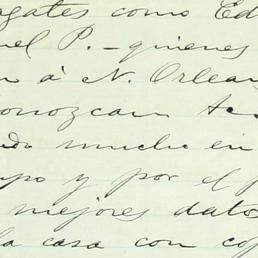 gates como Ed
uel P. – quienes
n á N. Orlean
onozcan
do mucho en
po y por el p
mejores dato
la casa con cop